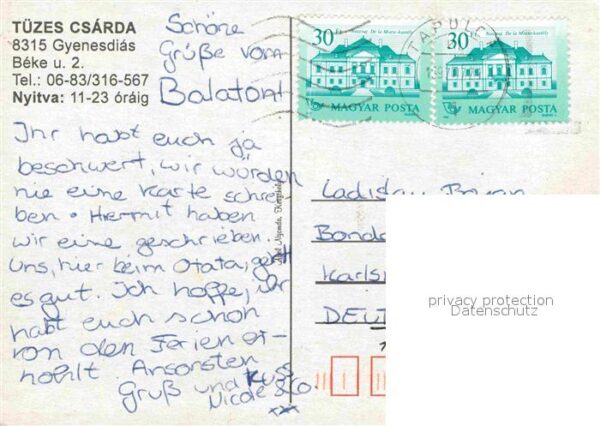 TÜZES CSÁRDA
8315 Gyenesdiás
Béke u. 2.
Tel.: 06-83/316-567
Nyitva: 11-23 óráig
Schöne
Grüße vom
Balaton!
Ihr habt euch ja
beschwert, wir würden
nie eine Karte schrei-
ben. Hiermit haben
wir eine geschrieben.
Uns, hier beim Otata, geht
es gut. Ich hoffe, ihr
habt euch schon
von den Ferien er-
hohlt Ansonsten
Gruß und Kuss
Nicole & Co
30 Ft
De la Motte-kastély
MAGYAR POSTA
30
De la Motte-kastély
MAGYAR POSTA
TAPOLC
Ladislav
Karls
DEUT
privacy protection
Datenschutz